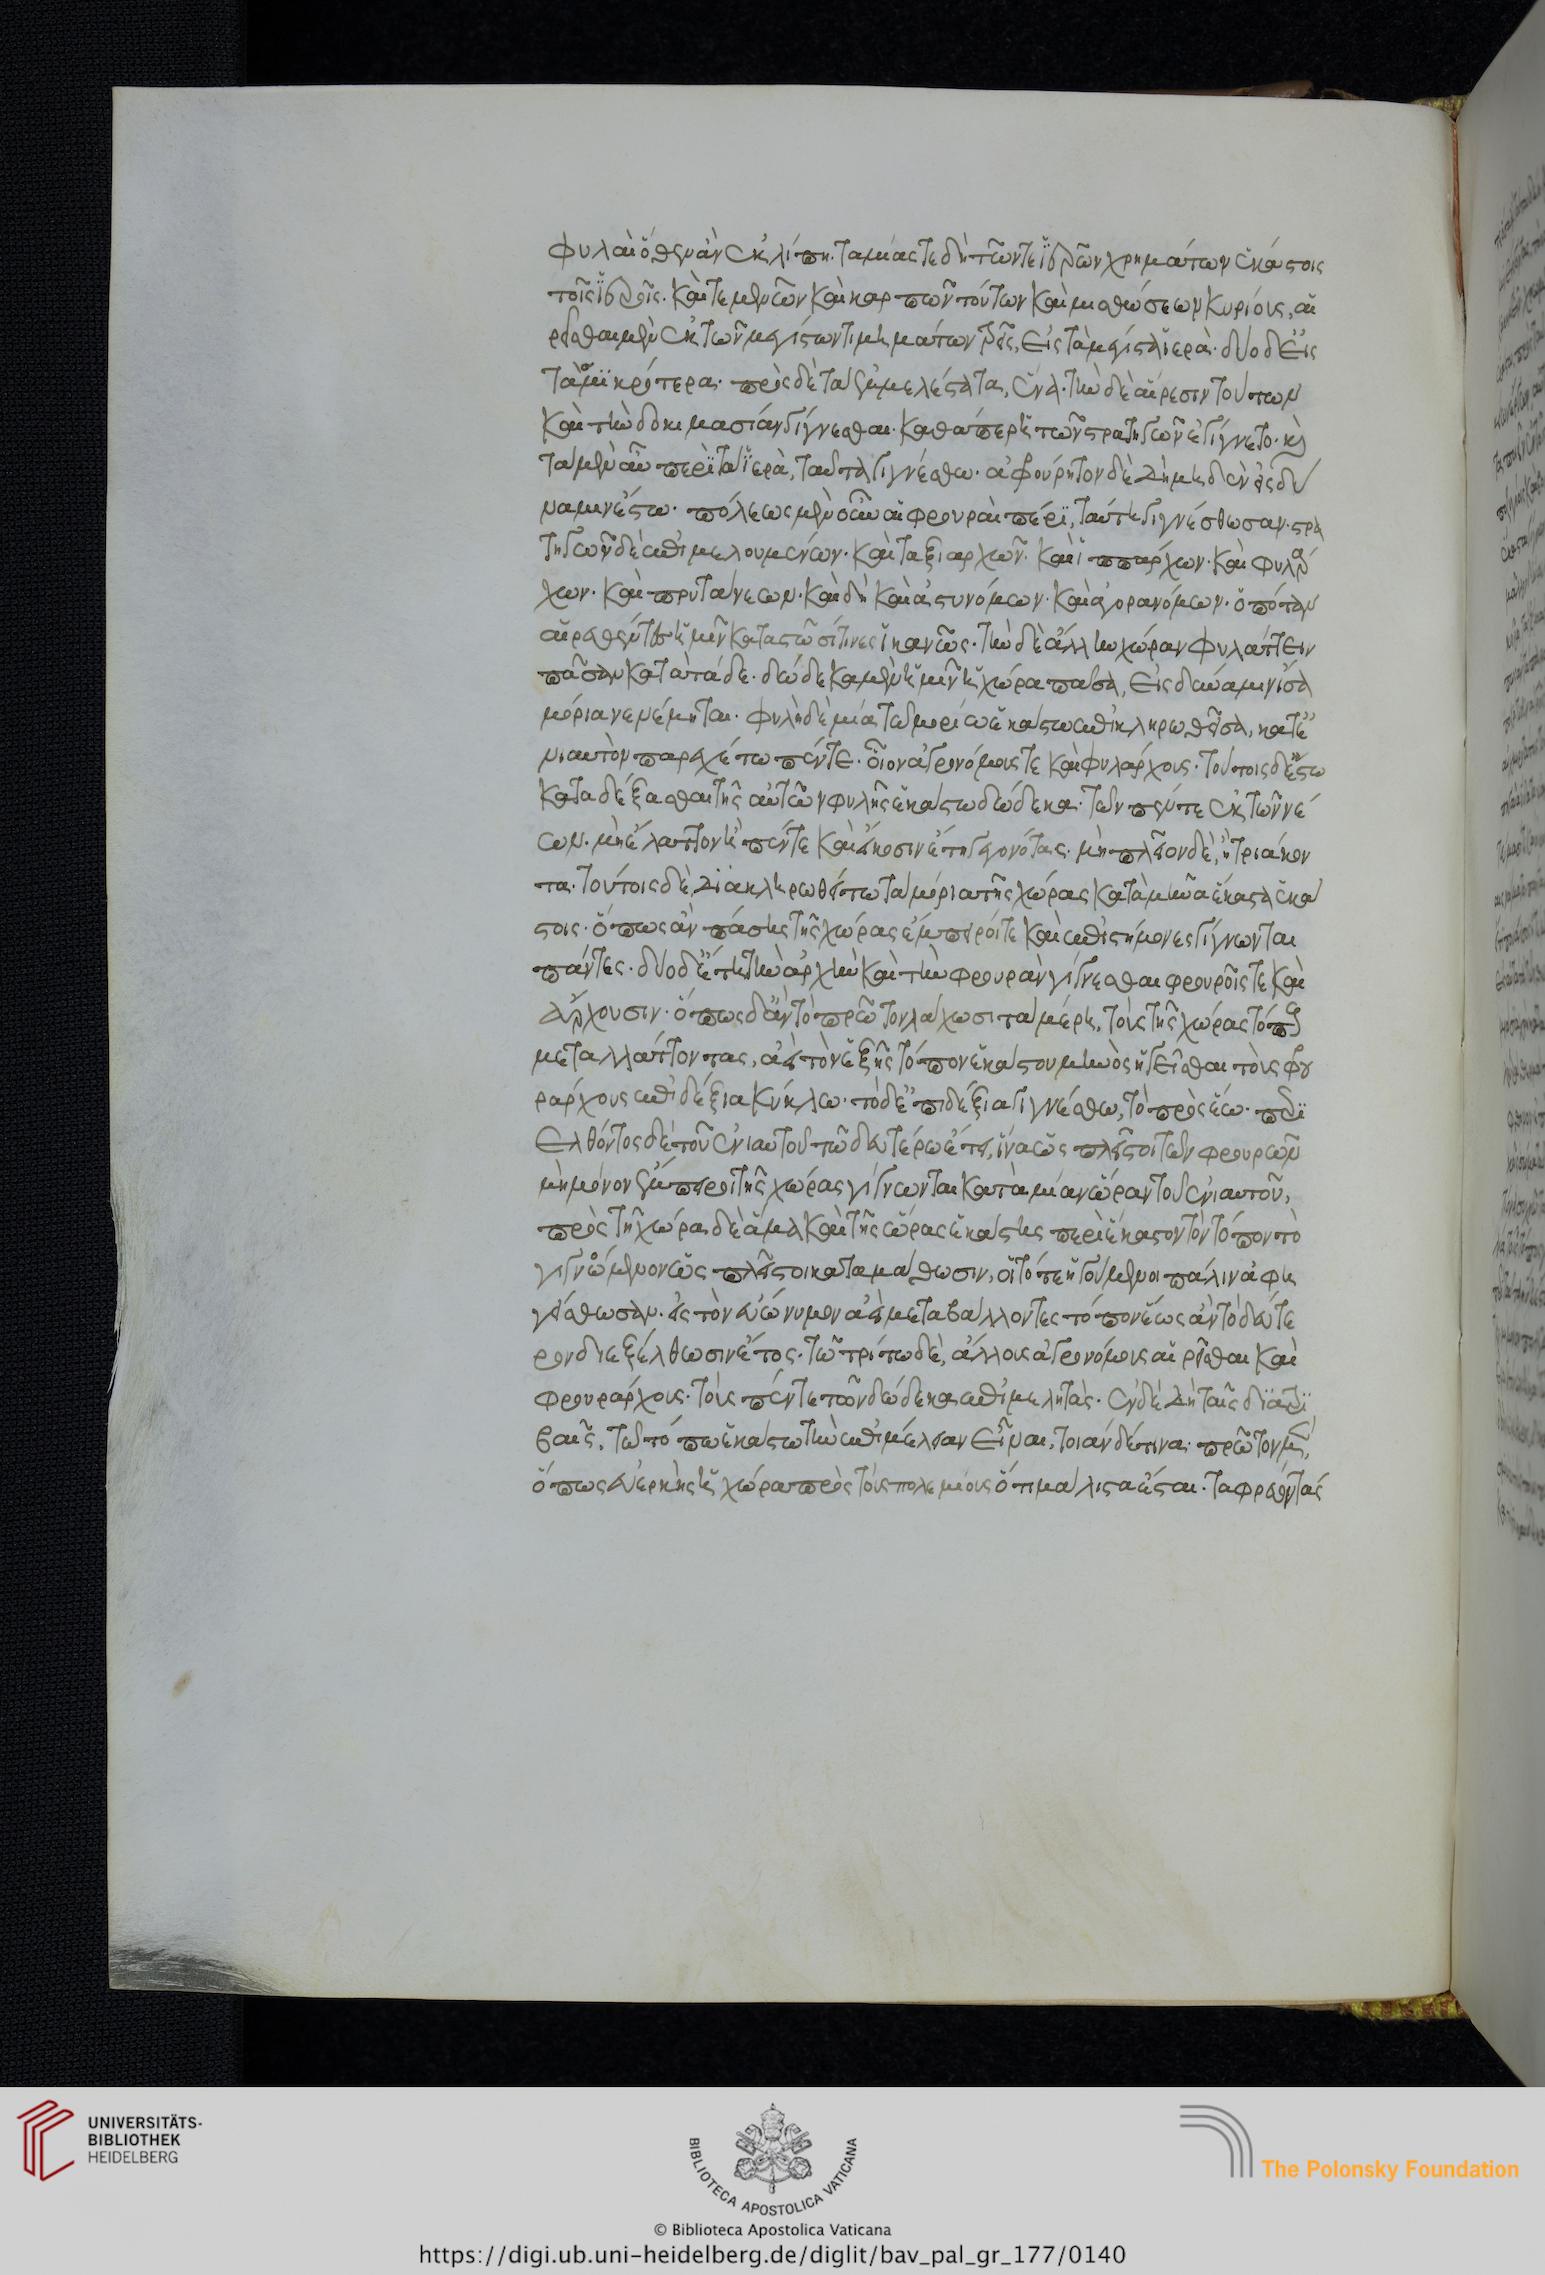 φυλαὶ ὅθεν ἂν ἐκλίπη. ταμίας τε δὴ τῶν τε ἱερῶν χρημάτων ἑκάστοις
τοῖς ἱεροῖς. καὶ τεμενῶν καὶ καρπῶν τούτων καὶ μισθώσεων κυρίους, αἱ
ρεῖσθαι μὲν ἐκ τῶν μεγίστων τιμημάτων τρεῖς, εἰς τὰ μέγιστα ἱερὰ. δύο δ' εἰς
τὰ σμικρότερα. πρὸς δὲ τὰ ἐμμελέστατα, ἕνα. τὴν δὲ αἵρεσιν τούτων
καὶ τὴν δοκιμασίαν γίγνεσθαι. καθάπερ ἡ τῶν στρατηγῶν ἐγίγνετο. καὶ
τὰ μὲν αὖ περὶ τὰ ἱερὰ, ταῦτα γιγνέσθω. ἀφρούρητον δὲ δὴ μηδὲν εἰς δύ
ναμιν ἔστω. πόλεως μὲν οὖν αἱ φρουραὶ πέρι, ταύτη γιγνέσθωσαν. στρα
τηγῶν δὲ ἐπιμελουμένων. καὶ ταξιαρχῶν. καὶ ἱππάρχων. καὶ φυλάρ
χων. καὶ πρυτάνεων. καὶ δὴ καὶ ἀστυνόμων. καὶ ἀγορανόμων. ὁπόταν
αἱρεθέντες ἡμῖν καταστῶσί τινες ἱκανῶς. τὴν δὲ ἄλλην χώραν φυλάττειν
πᾶσαν κατὰ τάδε. δώδεκα μὲν ἡμῖν ἡ χώρα πᾶσα, εἰς δύναμιν ἴσα
μόρια νενέμηται. φυλὴ δὲ μία τῷ μορίῳ ἑκάστῳ ἐπικληρωθεῖσα, κατ' ἐ
νιαυτὸν παρεχέτω πέντε. οἷον ἀγρονόμους τε καὶ φυλάρχους. τούτοις δ' ἔστω
καταλέξασθαι τῆς αὐτῶν φυλῆς ἑκάστῳ δώδεκα. τῶν πέντε ἐκ τῶν νέ
ων. μὴ ἔλαττον ἢ πέντε καὶ εἴκοσιν ἔτη γεγονότας. μὴ πλεῖον δὲ, ἢ τριάκον
τα. τούτοις δὲ διακληρωθήτω τὰ μόρια τῆς χώρας κατὰ μῆνα ἕκαστα ἑκά
στοις. ὅπως ἂν πάσης τῆς χώρας ἔμπειροί τε καὶ ἐπιστήμονες γίγνωνται
πάντες. δύο δ' ἔτη τὴν ἀρχὴν καὶ τὴν φρουρὰν γίγνεσθαι φρουροῖς τε καὶ
ἄρχουσιν. ὅπως δ' ἂν τὸ πρῶτον λάχωσι τὰ μέρη, τοὺς τῆς χώρας τόπους
μεταλλάττοντας, ἀεὶ τὸν ἑξῆς τόπον ἑκάστου μηνὸς ἡγεῖσθαι τοὺς φρου
ράρχους ἐπιδέξια κύκλῳ. τὸ δ' ἐπιδέξια γιγνέσθω, τὸ πρὸς ἕω. περι
ελθόντος δὲ τοῦ ἐνιαυτοῦ τῷ δευτέρῳ ἔτει, ἵνα ὡς πλεῖστοι τῶν φρουρῶν
μὴ μόνον ἔμπειροι τῆς χώρας γίγνωνται κατὰ μίαν ὥραν τοῦ ἐνιαυτοῦ,
πρὸς τῇ χώρᾳ δὲ ἅμα καὶ τῆς ὥρας ἑκάστης περὶ ἕκαστον τὸν τόπον τὸ
γιγνόμενον ὡς πλεῖστοι καταμάθωσιν, οἱ τότε ἡγούμενοι πάλιν ἀφη
γείσθωσαν. εἰς τὸν εὐώνυμον ἀεὶ μεταβάλλοντες τόπον ἕως ἂν τὸ δεύτε
ρον διεξέλθωσιν ἔτος. τῷ τρίτῳ δὲ, ἄλλους ἀγρονόμους αἱρεῖσθαι καὶ
φρουράρχους. τοὺς πέντε τῶν δώδεκα ἐπιμελητάς. ἐν δὲ δὴ ταῖς διατρι
βαῖς, τῷ τόπῳ ἑκάστῳ τὴν ἐπιμέλειαν εἶναι, τοιάνδέ τινα. πρῶτον μὲν,
ὅπως εὐερκὴς ἡ χώρα πρὸς τοὺς πολεμίους ὅτι μάλιστα ἔσται. ταφρεύοντάς
UNIVERSITÄTS-
BIBLIOTHEK
HEIDELBERG
BIBLIOTECA APOSTOLICA VATICANA
The Polonsky Foundation
© Biblioteca Apostolica Vaticana
https://digi.ub.uni-heidelberg.de/diglit/bav_pal_gr_177/0140